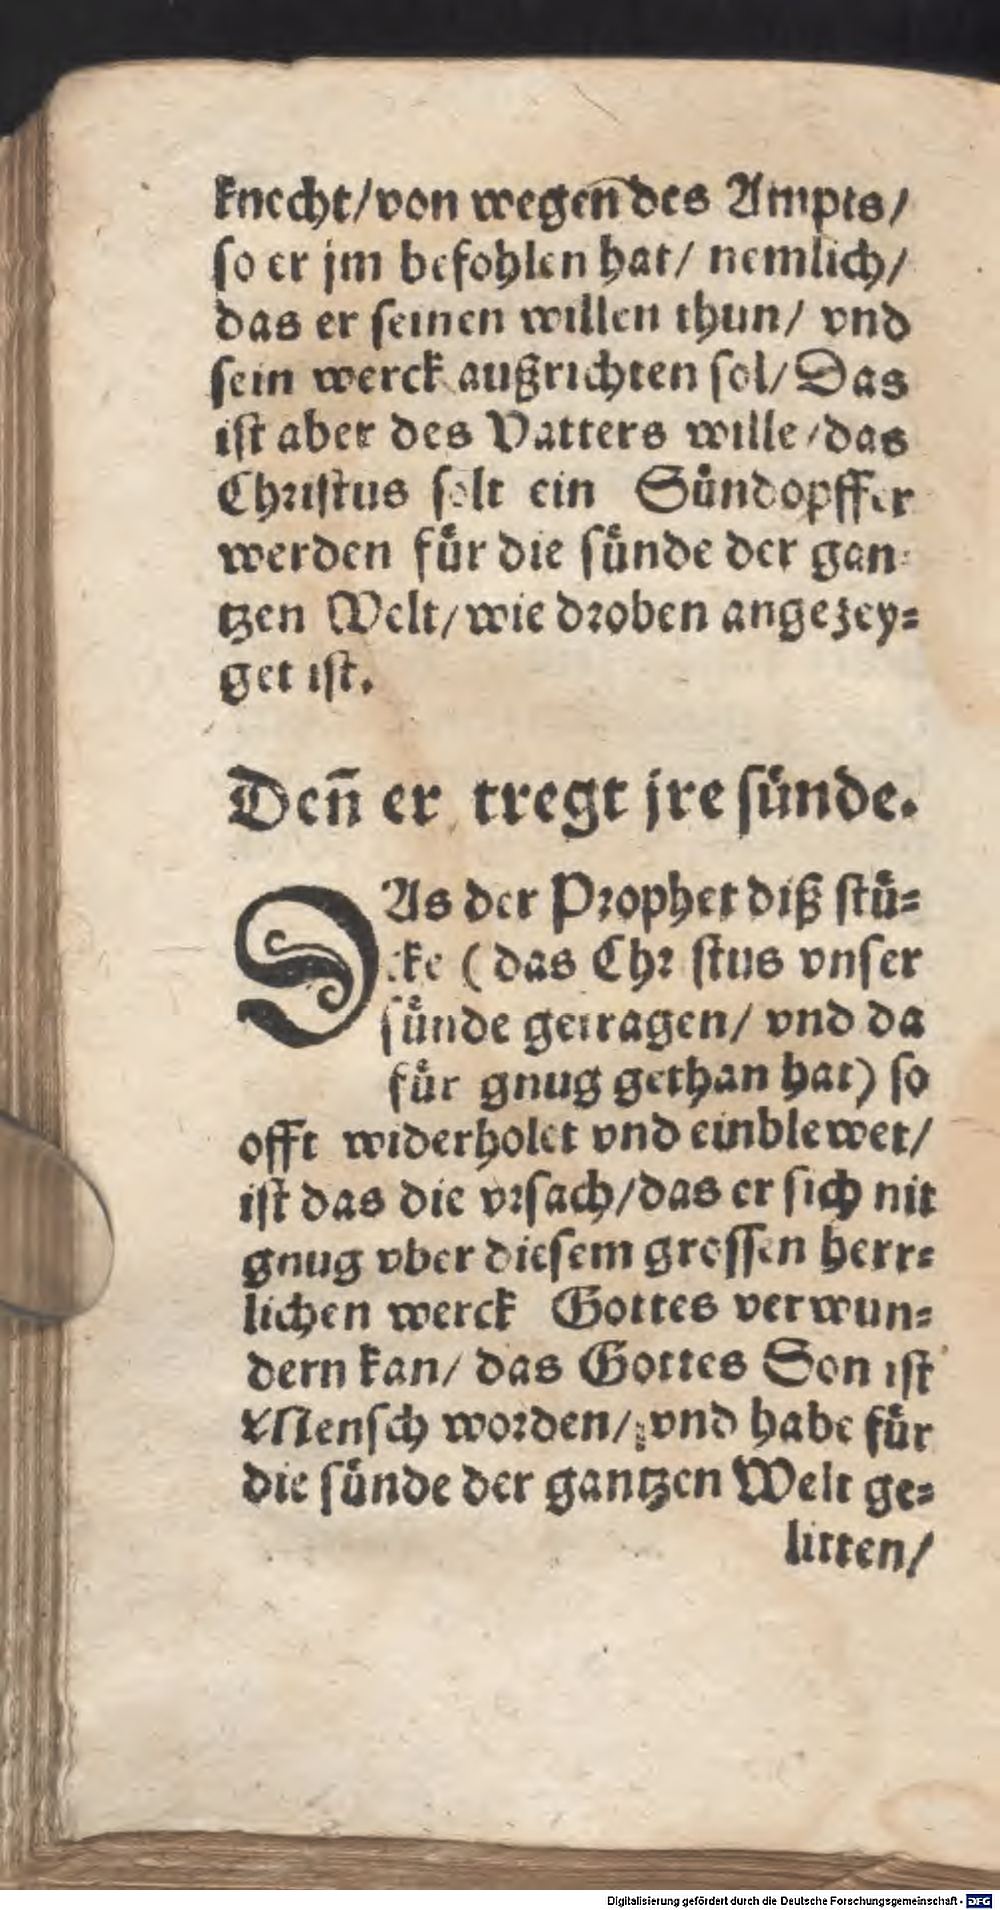 knecht/von wegen des Ampts/
so er jm befohlen hat/ nemlich/
das er seinen willen thun/ vnd
sein werck außrichten sol/ Das
ist aber des Vatters wille/das
Christus solt ein Sündopffer
werden für die sünde der gan-
tzen Welt/wie droben angezey-
get ist.
Deñ er tregt jre sünde.
DAs der Prophet diß stü-
cke (das Christus vnser
sünde getragen/ vnd da
für gnug gethan hat) so
offt widerholet vnd einblewet/
ist das die vrsach/das er sich nit
gnug vber diesem grossen herr-
lichen werck Gottes verwun-
dern kan/ das Gottes Son ist
Mensch worden/ vnd habe für
die sünde der gantzen Welt ge-
litten/
Digitalisierung gefördert durch die Deutsche Forschungsgemeinschaft - DFG